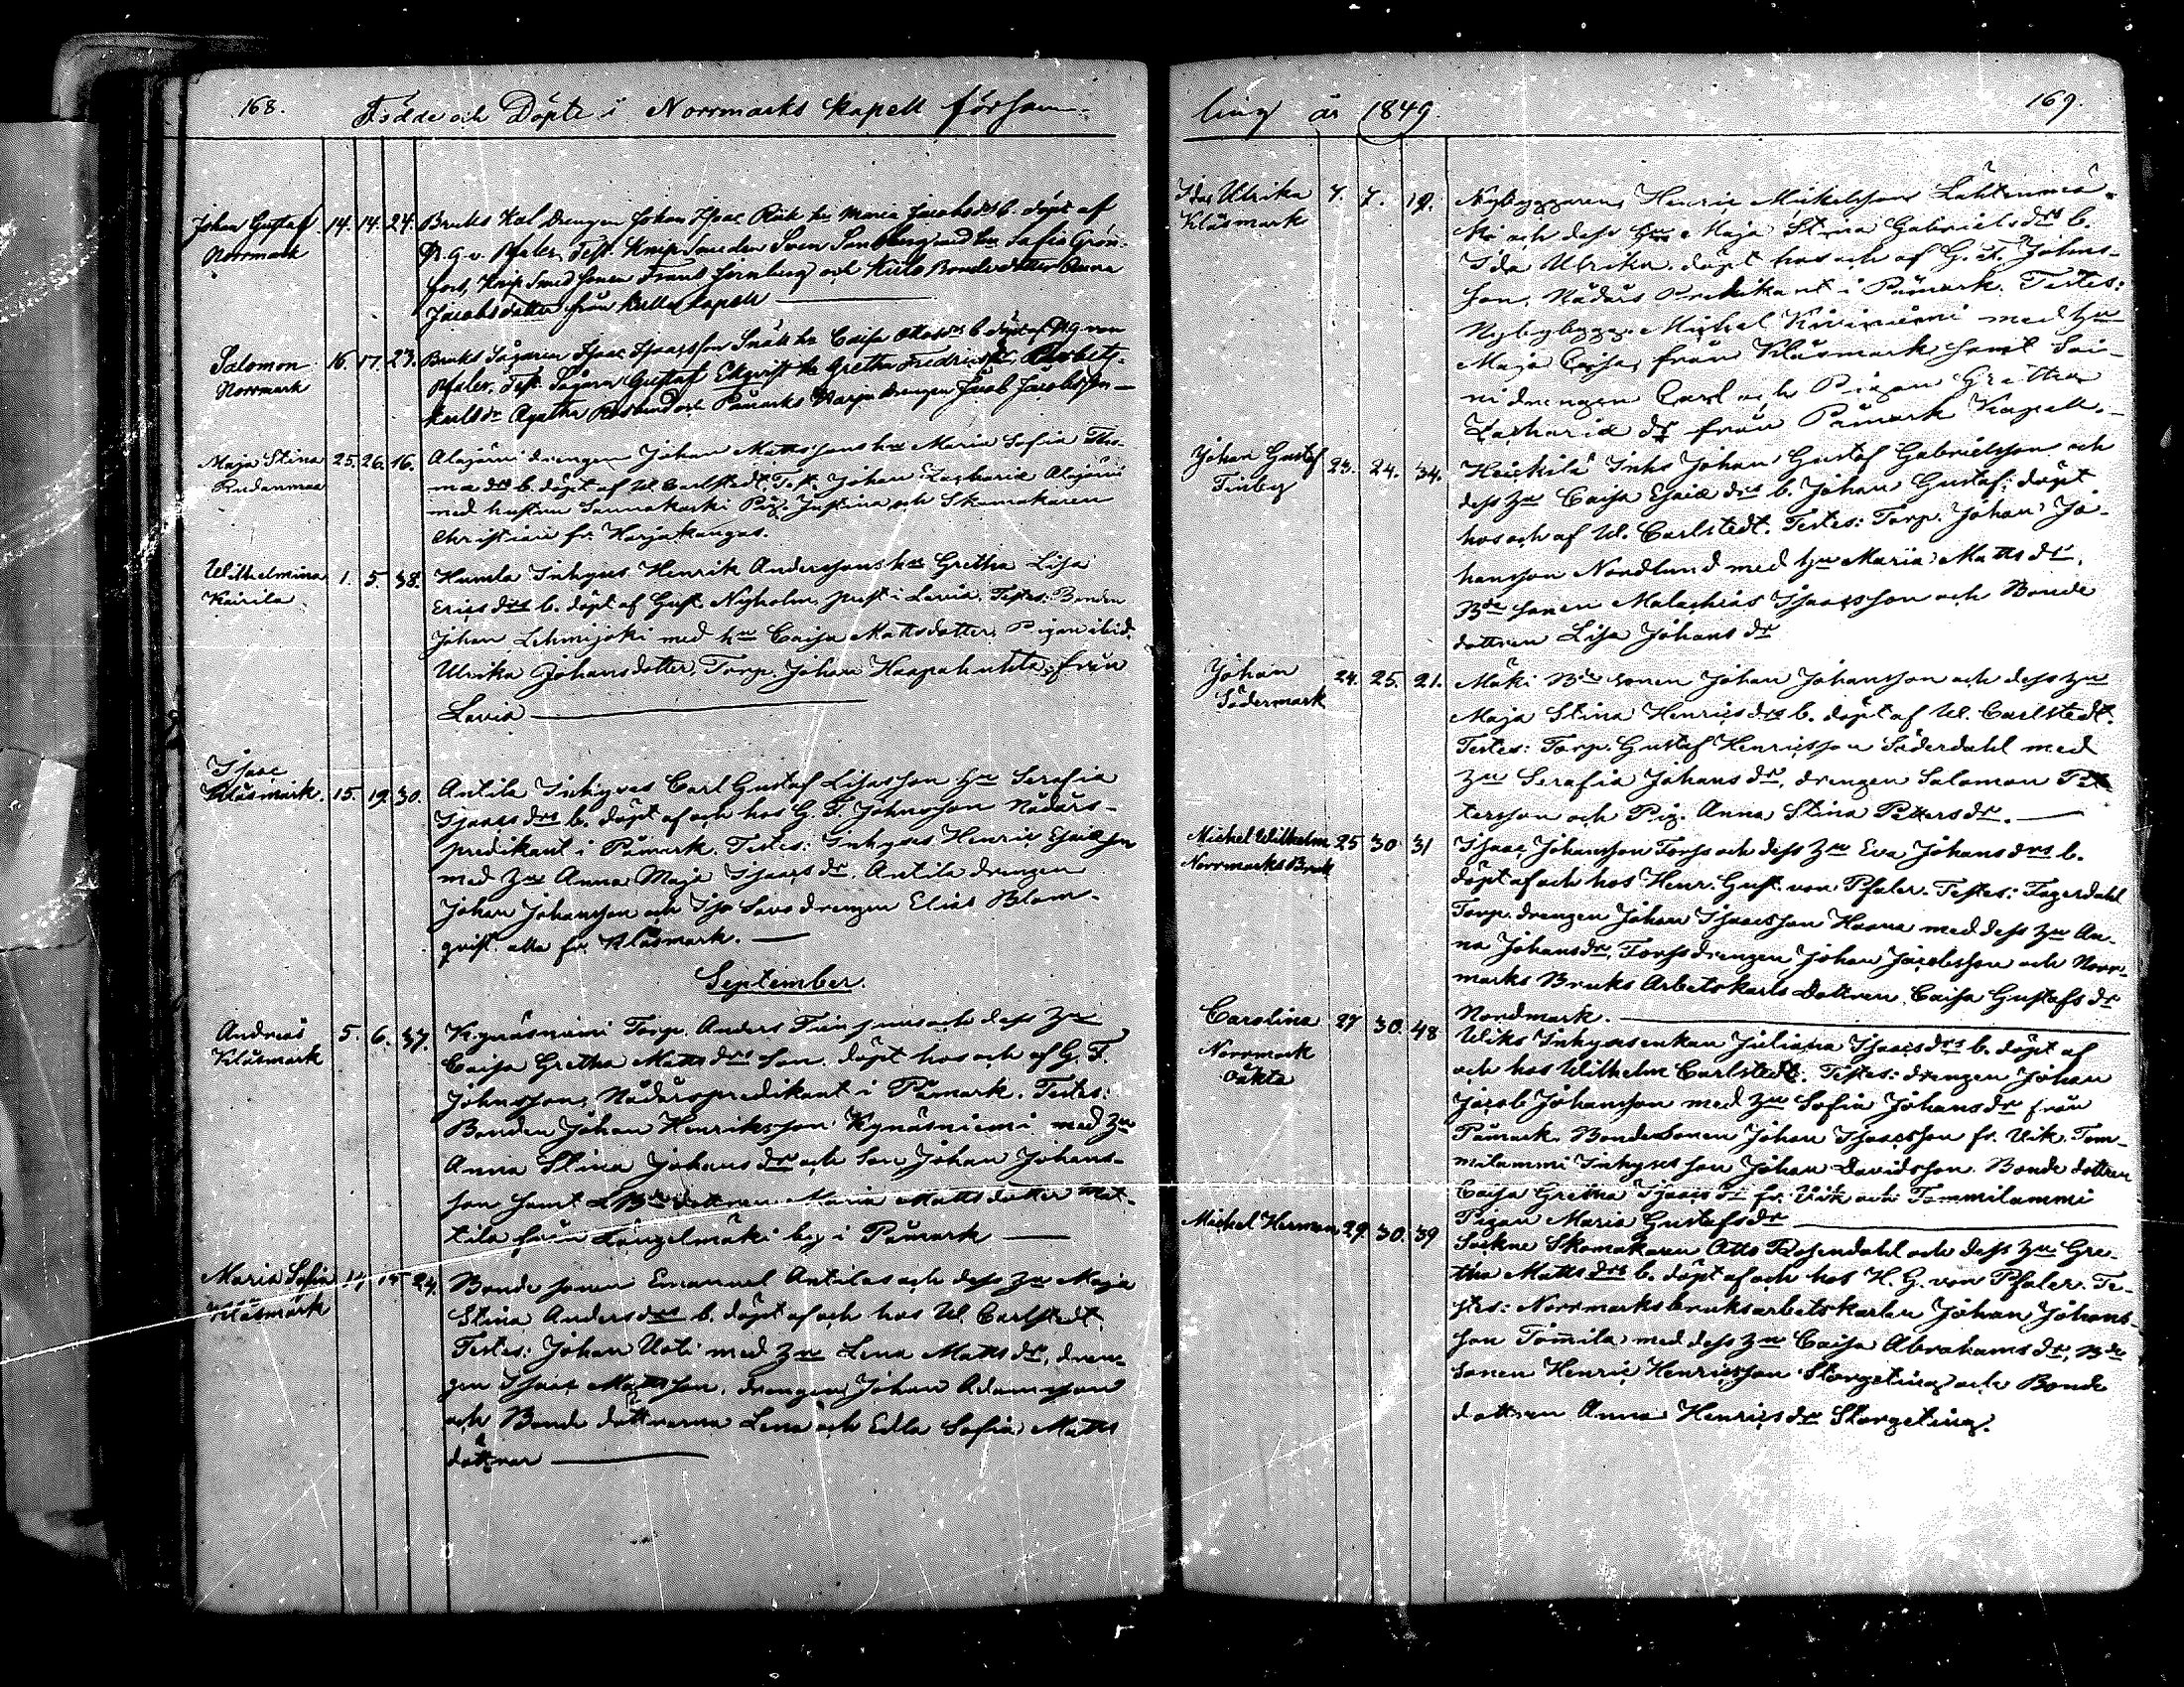 168.
Födde och Döpte i Norrmarks kapell försam-
Johan Gustaf 14. 14. 24. Bruks Kol drengen Johan Isaac Rük hu Maria Jacobsdrs b. döpt af
Norrmark
H. G. v. Pfaler. Test. Knip Smeden Sven Sandberg med hu Sofia Grön-
fors, Knip Smedsonen Frans Fernberg och Kulo Bonde dotter Anna
Jacobsdotter från Kulla kapell
Salomon 16. 17. 23. Bruks Sågaren Isaac Isaacsson Snäll hu Caisa Ottosdrs b. döpt af H. g. von
Norrmark
Pfaler. Test. Sågaren Gustaf Edqvist hu Gretha Fredricsdr, Arbets-
karlsdr Agatha och Påmarks drengen Jacob Jacobsson
Maja Stina 25. 26. 16. Alajärvi drengen Johan Mattssons hus Maria Sofia Tho-
mædrs b. döpt af W. Carlstedt. Test. Johan Zachariæ Alajärvi
med hustru Sannakoski Pig. Justina och Skomakaren
Christian fr. Harjakangas.
Wilhelmina 1. 5. 38. Humla Inhyses Henrik Anderssons hus Gretha Lisa
Kairila
Ericsdrs b. döpt af Gust. Nyholm, prest i Lavia. Testes: Bonden
Johan Lehmijoki med hu Caisa Mattsdotter, Pigan ibid.
Ulrika Johansdotter, Torp. Johan Haapahuhta, från
Lavia
Isaac
Klåsmark. 15. 19. 30. Antila Inhyses Carl Gustaf Lisasson hu Serafia
Isaacsdrs b. döpt af och hos G. F. Johnsson Nådårs-
predikant i Påmark. Testes: Inhyses Henric Esaiæson
med hu Anna Maja Isaacsdr, Antila drengen
Johan Johansson och Iso Savo drengen Elias Blom-
qvist. alla fr. Klåsmark.
September.
Andreas 5. 6. 37. Kynäsniemi Torp. Anders Fransson och dess hu
Klåsmark
Caisa Gretha Mattsdrs Son. döpt hos och af G. F.
Johnsson, Nådårspredikant i Påmark. Testes:
Bonden Johan Henriksson Kynäsniemi med hu
Anna Stina Johansdr och Son Johan Johans-
son samt Bde dottren Maria Mattsdotter Mat-
tila från Längelmäki by i Påmark
Maria Sofia 14 15 24. Bonde sonen Emanuel Antilas och dess hu Maja
Klåsmark
Stina Andersdrs b. döpt af och hos W. Carlstedt.
Testes: Johan Uoti med hu Lena Mattsdr, dren-
gen Isaac Mattsson, drengen Johan Adamsson
och Bonde döttrarna Lena och Edla Sofia Matts
döttrar
ling år 1849.
169.
Ida Ulrika 7. 7. 19. Nybyggaren Henric Mickelsson Lähteenmä-
Klåsmark
ki och dess hu Maja Stina Gabrielsdrs b.
Ida Ulrika. döpt hos och af G. F. Johns-
son, Nådårs Predikant i Påmark. Testes:
Nybybygg. Michel Kiviniemi med hu
Maja Caisa, från Klåsmark samt Sai-
ni drengen Carl och Pigan Gretha
Zachariæ dr från Påmark Kapell.
Johan Gustaf 23. 24. 34. Heickilä Inhs Johan Gustaf Gabrielsson och
Finby
dess hu Caisa Esaiædrs b. Johan Gustaf: döpt
hos och af W. Carlstedt. Testes: Torp. Johan Jo-
hansson Nordlund med hu Maria Mattsdr,
Bde sonen Malachias Isaacsson och Bonde
dottren Lisa Johansdr
Johan 24. 25. 21. Mäki Bde sonen Johan Johansson och dess hu
Södermark
Maja Stina Henricsdrs b. döpt af W. Carlstedt.
Testes: Torp. Gustaf Henricsson Söderdahl med
hu Serafia Johansdr, drengen Salomon Pet-
tersson och Pig. Anna Stina Pettersdr.
Michel Wilhelm 25 30 31 Isaac Johansson Forss och dess hu Eva Johansdrs b.
Norrmarks Bruk
döpt af och hos Henr. Gust. von Pfaler. Testes: Fagerdahl
Torp. drengen Johan Isaacsson Haana med dess hu An-
na Johansdr, Forssdrengen Johan Jacobsson och Norr-
marks Bruks Arbetskarls Dottren Caisa Gustafsdr
Nordmark.
Carolina 27 30. 48 Wiks Inhysesenkan Juliana Isaacsdrs b. döpt af
Norrmark
oäkta
och hos Wilhelm Carlstedt. Testes: drengen Johan
Jacob Johansson med hu Sofia Johansdr från
Påmark. Bondesonen Johan Isaacsson fr. Wik. Tom-
milammi Inhyses son Johan Davidsson. Bonde dottren
Caisa Gretha Isaacsdr fr. Wik och Tommilammi
Pigan Maria Gustafsdr
Michel Herman 29. 30. 39 Sockne Skomakaren Otto Rosendahl och dess hu Gre-
tha Mattsdrs b. döpt af och hos H. G. von Pfaler. Te-
stes: Norrmarks bruksarbetskarlen Johan Johans-
son Tomila, med dess hu Caisa Abrahamsdr, Bde
sonen Henric Henricsson Storgeting och Bonde
dottren Anna Henricsdr Storgeting.